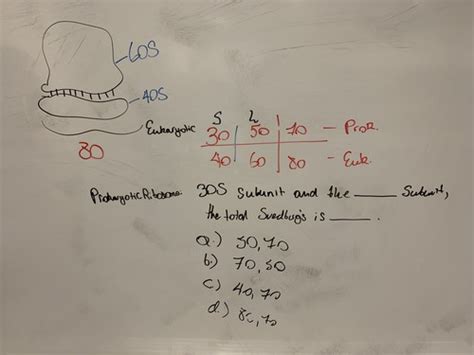 60S
40S
Eukaryotic
80
S L
30 50 70 — Prok.
40 60 80 — Euk.
Prokaryotic Ribosome: 30S subunit and the ____ subunit,
the total Svedbug's is ____.
a.) 50, 70
b.) 70, 50
c.) 40, 70
d.) 80, 70